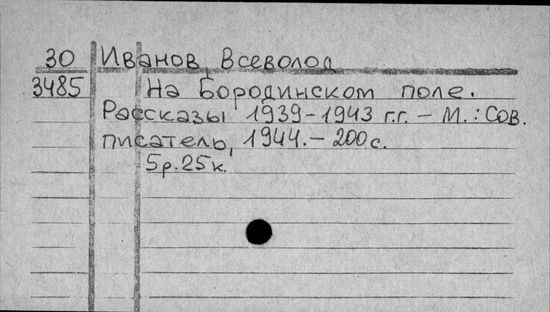 30 Иванов, Всеволод
3485 На Бородинском поле.
Рассказы 1939-1943 г.г. - М.: Сов.
писатель, 1944. - 200 с.
5р.25к.